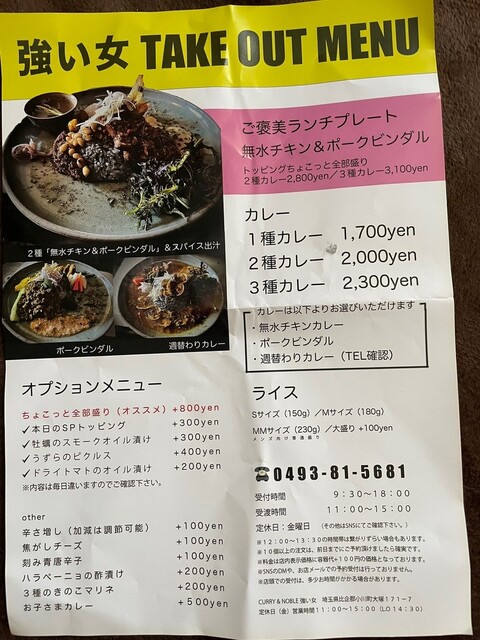 強い女 TAKE OUT MENU
ご褒美ランチプレート
無水チキン＆ポークビンダル
トッピングちょこっと全部盛り
2種カレー2,800yen／3種カレー3,100yen
2種「無水チキン＆ポークビンダル」＆スパイス出汁
ポークビンダル
週替わりカレー
カレー
1種カレー 1,700yen
2種カレー 2,000yen
3種カレー 2,300yen
カレーは以下よりお選びいただけます
・無水チキンカレー
・ポークビンダル
・週替わりカレー（TEL確認）
オプションメニュー
ちょこっと全部盛り（オススメ）+800yen
✓本日のSPトッピング +300yen
✓牡蠣のスモークオイル漬け +300yen
✓うずらのピクルス +400yen
✓ドライトマトのオイル漬け +200yen
※内容は毎日違いますのでご確認下さい。
other
辛さ増し（加減は調節可能） +100yen
焦がしチーズ +100yen
刻み青唐辛子 +100yen
ハラペーニョの酢漬け +200yen
3種のきのこマリネ +200yen
お子さまカレー +500yen
ライス
Sサイズ（150g）／Mサイズ（180g）
MMサイズ（230g）／大盛り +100yen
メンズ向け普通盛り
☎0493-81-5681
受付時間 9：30～18：00
受渡時間 11：00～15：00
定休日：金曜日 （その他はSNSにてご確認下さい。）
※12：00～13：30の時間帯は繋がりずらい場合もあります。
※10個以上の注文は、前日までにご予約頂けましたら確実です。
※料金は店内表示価格に容器代+100円の価格となっております。
※SNSのDMや、お店メールでの予約受付は行っておりません。
※店頭での受付は、多少お時間がかかる場合があります。
CURRY & NOBLE 強い女 埼玉県比企郡小川町大塚171−7
定休日（金）営業時間11：00～15：00（LO14：30）